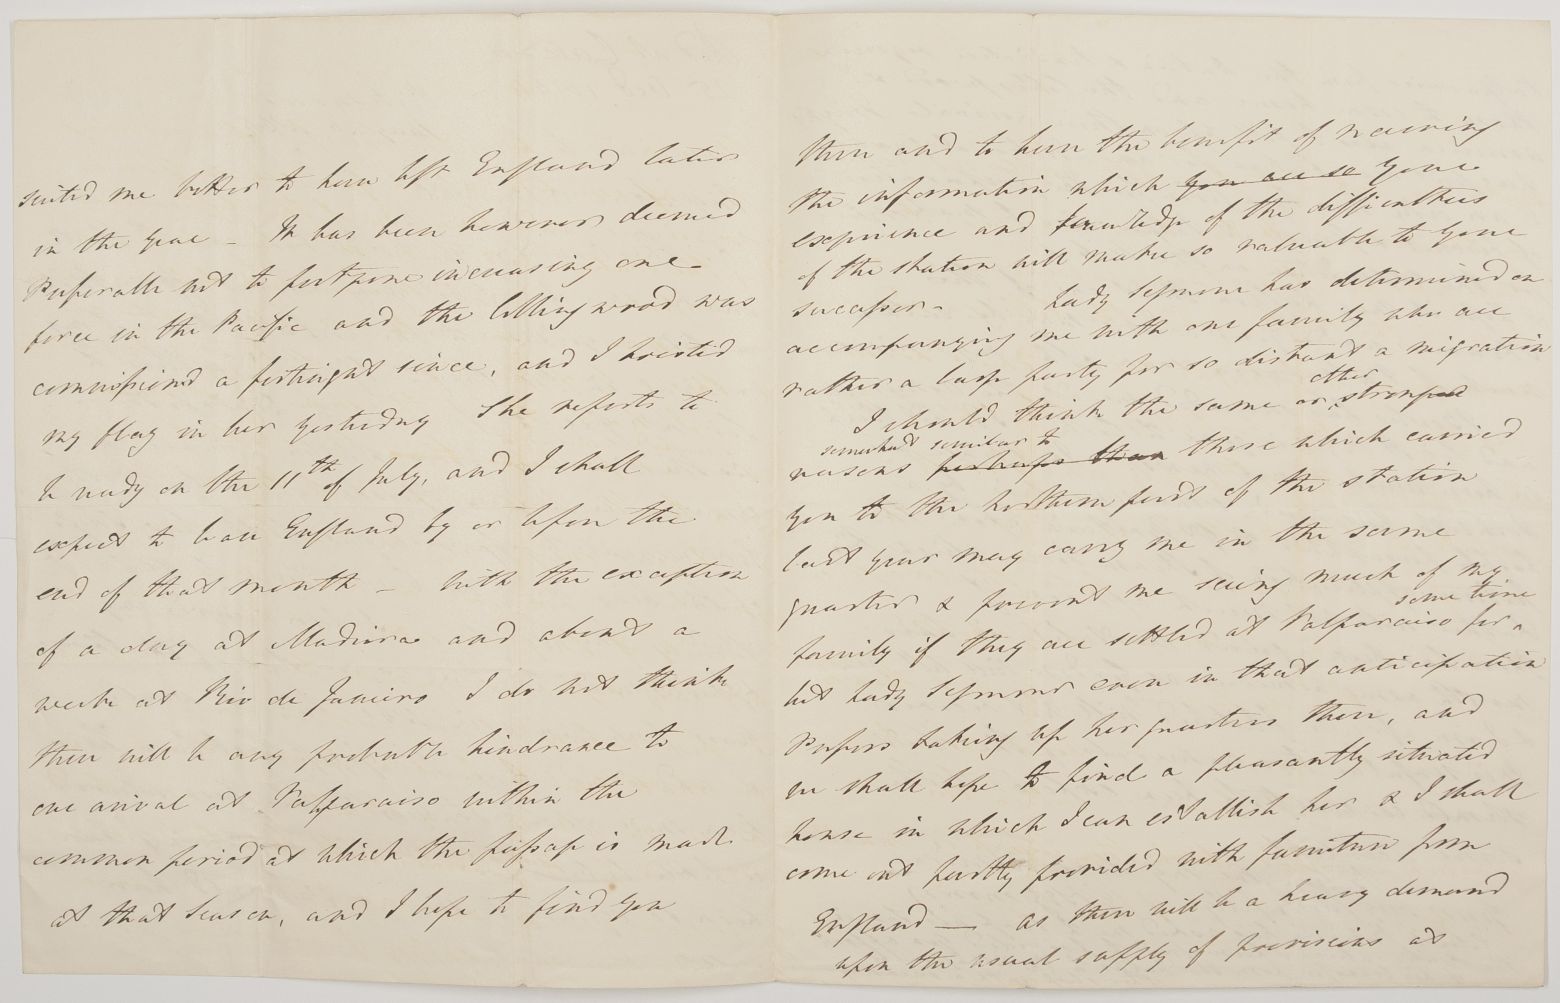 suited me better to have left England later
in the year - It has been however deemed
preferable not to postpone increasing our
force in the Pacific and the Collingwood was
commissioned a fortnight since, and I hoisted
my flag in her yesterday She reports to
be ready on the 11th of July, and I shall
expect to leave England by or before the
end of that month - With the exception
of a day at Madeira and about a
week at Rio de Janeiro I do not think
there will be any probable hindrance to
our arrival at Valparaiso within the
common period at which the passage is made
at that season, and I hope to find you
there and to have the benefit of receiving
the information which you are so your
experience and knowledge of the difficulties
of the station will make so valuable to your
successor - Lady Seymour has determined on
accompanying me with our family who are
rather a large party for so distant a migration
I should think the same or other stronger
reasons perhaps than somewhat similar to those which carried
you to the northern part of the station
last year may carry me in the same
quarter & prevent me seeing much of my
family if they are settled at Valparaiso for some time
but Lady Seymour even in that anticipation
prefers taking up her quarters there, and
we shall hope to find a pleasantly situated
house in which I can establish her & I shall
come out partly provided with furniture from
England — as there will be a heavy demand
upon the usual supply of provisions at